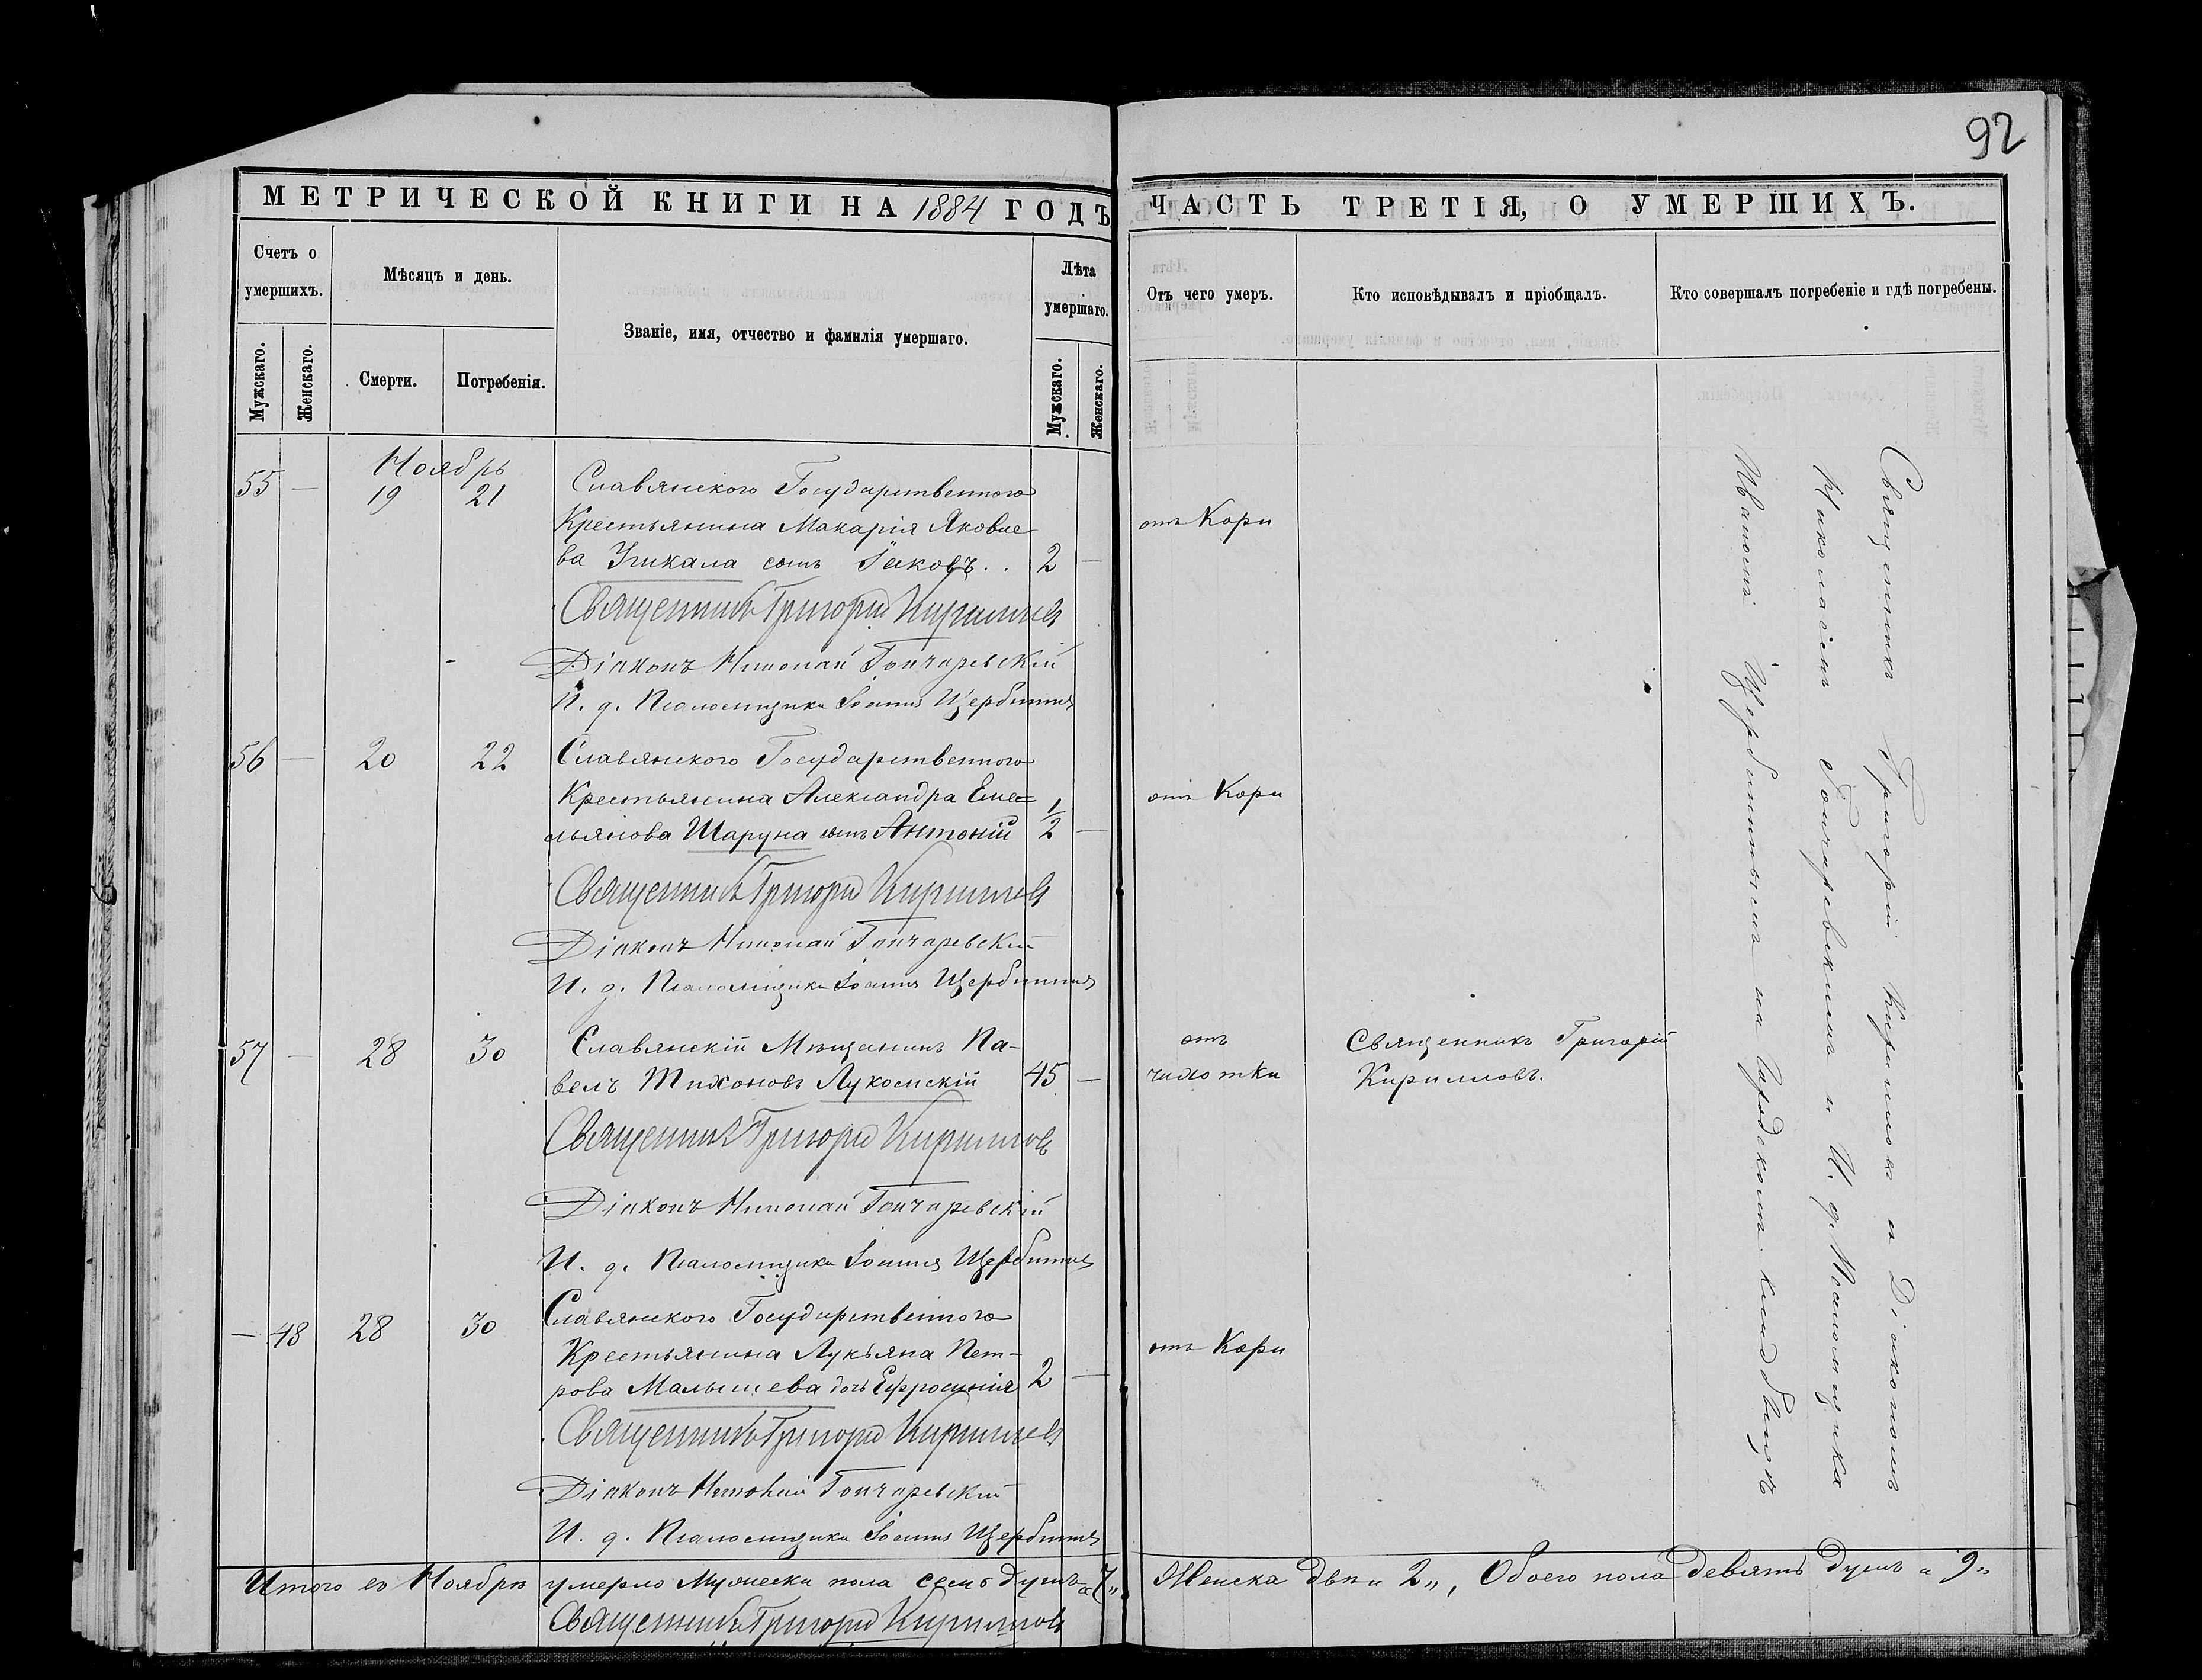 92
МЕТРИЧЕСКОЙ КНИГИ НА 1884 ГОДЪ
ЧАСТЬ ТРЕТІЯ, О УМЕРШИХЪ.
Счетъ о умершихъ.
Мужскаго.
Женскаго.
Мѣсяцъ и день.
Смерти.
Погребенія.
Званіе, имя, отчество и фамилія умершаго.
Лѣта умершаго.
Мужскаго.
Женскаго.
Отъ чего умеръ.
Кто исповѣдывалъ и пріобщалъ.
Кто совершалъ погребеніе и гдѣ погребены.
Ноябрь
55 — 19 21 Славянского Государственного
Крестьянина Макарія Яковле
ва сынъ Іаковъ.. 2 —
отъ Кори
Священникъ Григорій Кирилловъ
Діаконъ Николай Гончаревскій
И. д. Псаломщика Іоаннъ Щербининъ
56 — 20 22 Славянского Государственного
Крестьянина Александра Еме=
льянова Шаруна сынъ Антоній 1/2 —
отъ Кори
Священникъ Григорій Кирилловъ
Діаконъ Николай Гончаревскій
И. д. Псаломщика Іоаннъ Щербининъ
57 — 28 30 Славянскій Мѣщанинъ Па-
велъ Тихоновъ 45 —
отъ
чахотки
Священникъ Григорій
Кирилловъ.
Священникъ Григорій Кирилловъ
Діаконъ Николай Гончаревскій
И. д. Псаломщика Іоаннъ Щербининъ
— 48 28 30 Славянского Государственного
Крестьянина Лукьяна Пет-
рова Малышева дочь Ефросинія 2 —
отъ Кори
Священникъ Григорій Кирилловъ
Діаконъ Николай Гончаревскій
И. д. Псаломщика Іоаннъ Щербининъ
Священникъ Григорій Кирилловъ съ Діакономъ
Николаемъ Гончаревскимъ и И. д. Псаломщика
Иваномъ Щербининымъ на Городскомъ кладбищѣ
Итого въ Ноябрѣ умерло Мужеска пола семь душъ „7„ Женска двѣ „2„, Обоего пола девять душъ „9„
Священникъ Григорій Кирилловъ